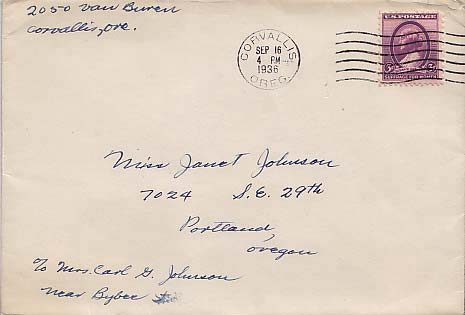 2050 Van Buren
Corvallis, Ore.
CORVALLIS
SEP 16
4 PM
1936
OREG.
U.S. POSTAGE
3¢
SUFFRAGE FOR WOMEN
Miss Janet Johnson
7024 S.E. 29th
Portland,
Oregon
% Mrs. Carl G. Johnson
Near Bybee